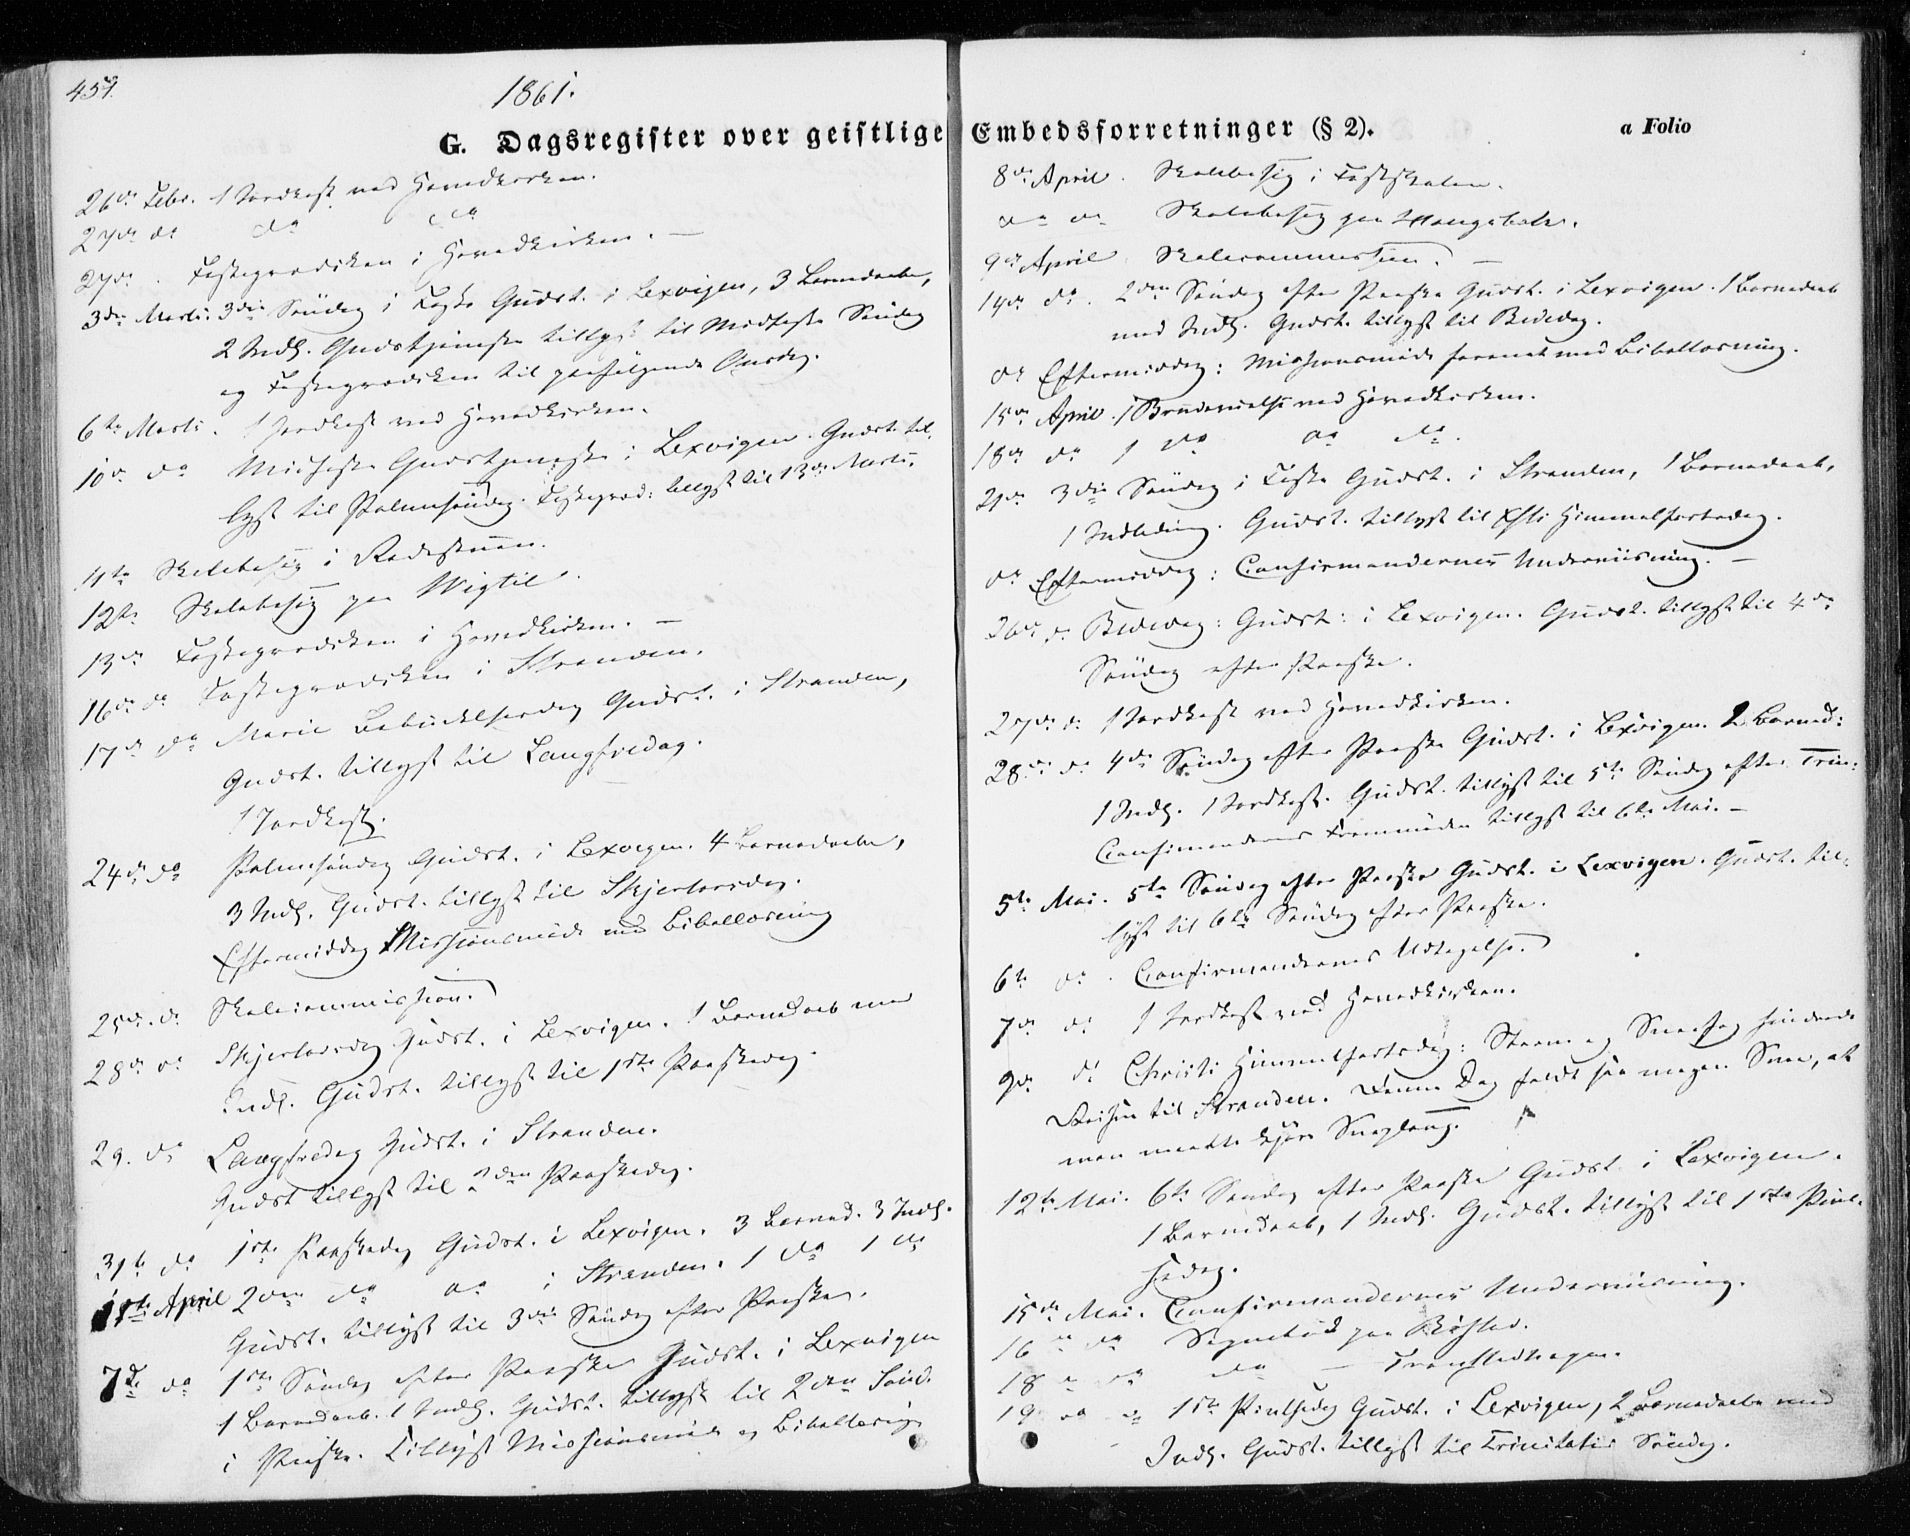 457.
1861.
G. Dagsregister over geistlige Embedsforretninger (§ 2).
a Folio
26de Febr. 1 Jordkast ved Hovedkirken.
27de do do do
27de. Fasteprædiken i Hovedkirken. —
3die Marts. 3die Søndag i Faste Gudst. i Lexvigen, 3 Barnedaabe,
2 Indl. Gudstjeneste tillyst til Midfaste Søndag
og Fasteprædiken til paafølgende Onsdag.
6te Marts. 1 Jordkast ved Hovedkirken.
10de do Midfaste Gudstjeneste i Lexvigen. Gudst. til-
lyst til Palmesøndag. Fastepræd: tillyst til 13de Marts.
11te Skolebesøg i
12te Skolebesøg paa Wigtil.
13de Fasteprædiken i Hovedkirken. —
16de do Fasteprædiken i Stranden.
17de do Mariæ Bebudelsesdag Gudst. i Stranden,
Gudst. tillyst til Langfredag.
1 Jordkast.
24de do Palmesøndag Gudst. i Lexvigen. 4 Barnedaabe,
3 Indl. Gudst. tillyst til Skjertorsdag.
Eftermiddag Missionsmøde med Bibellæsning
25de do Skolecommission.
28de do Skjertorsdag Gudst. i Lexvigen. 1 Barnedaab med
Indl. Gudst. tillyst til 1ste Paaskedag.
29. do Langfredag Gudst. i Stranden.
Gudst tillyst til 2den Paaskedag.
31te do 1ste Paaskedag Gudst. i Lexvigen. 3 Barned. 3 Indl.
1ste April 2den do do i Stranden. 1 do 1 do
Gudst. tillyst til 3die Søndag efter Paaske.
7de do 1ste Søndag efter Paaske Gudst. i Lexvigen
1 Barnedaab. 1 Indl. Gudst. tillyst til 2den Sønd.
i Paaske. Tillyst Missionsmøde og Bibellæsning
8de April. Skolebesøg i Fastskolen.
do do Skolebesøg paa
9de April Skolecommission. —
14de do. 2den Søndag efter Paaske Gudst. i Lexvigen. 1 Barnedaab
med Indl. Gudst. tillyst til Bededag.
do Eftermiddag: Missionsmøde forenet med Bibellæsning.
15de April. 1 Brudevielse ved Hovedkirken.
18de do 1 do do do.
21de 3die Søndag i Paaske Gudst. i Stranden, 1 Barnedaab,
1 Indledning. Gudst. tillyst til Chsti Himmelfartsdag.
do Eftermiddag: Confirmandernes Underviisning. —
26de do Bededag: Gudst: i Lexvigen. Gudst. tillyst til 4de
Søndag efter Paaske.
27de do 1 Jordkast ved Hovedkirken.
28de do 4de Søndag efter Paaske Gudst. i Lexvigen. 2 Barned:
1 Indl. 1 Jordkast. Gudst. tillyst til 5te Søndag efter Trin:
Confirmandernes Fremmøde tillyst til 6te Mai. —
5te Mai. 5te Søndag efter Paaske Gudst. i Lexvigen. Gudst. til-
lyst til 6te Søndag efter Paaske.
6te do. Confirmandernes Udtagelse.
7de do 1 Jordkast ved Hovedkirken.
9de do Christi Himmelfartsdag: Storm og Sneefog hindrede
Reisen til Stranden. Denne Dag faldt saa megen Snee, at
man maatte kjøre Sneeploug.
12te Mai. 6te Søndag efter Paaske Gudst. i Lexvigen.
1 Barnedaab, 1 Indl. Gudst. tillyst til 1ste Pint-
sedag.
15de Mai. Confirmandernes Underviisning.
16de do Sognebud paa
18de do do —
19de do 1ste Pintsedag Gudst. i Lexvigen, 2 Barnedaabe med
Indl. Gudst. tillyst til Trinitatis Søndag.